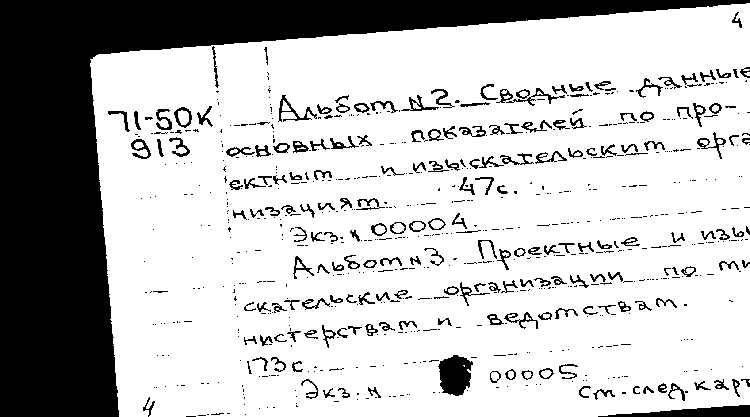 4
71-50К
913
Альбом N2. Сводные данные
основных показателей по про-
ектным и изыскательским орга
низациям. 47с.
Экз. N 00004.
Альбом N3. Проектные и изы
скательские организации по ми
нистерствам и ведомствам.
173с.
Экз. N 00005
См. след. карт
4